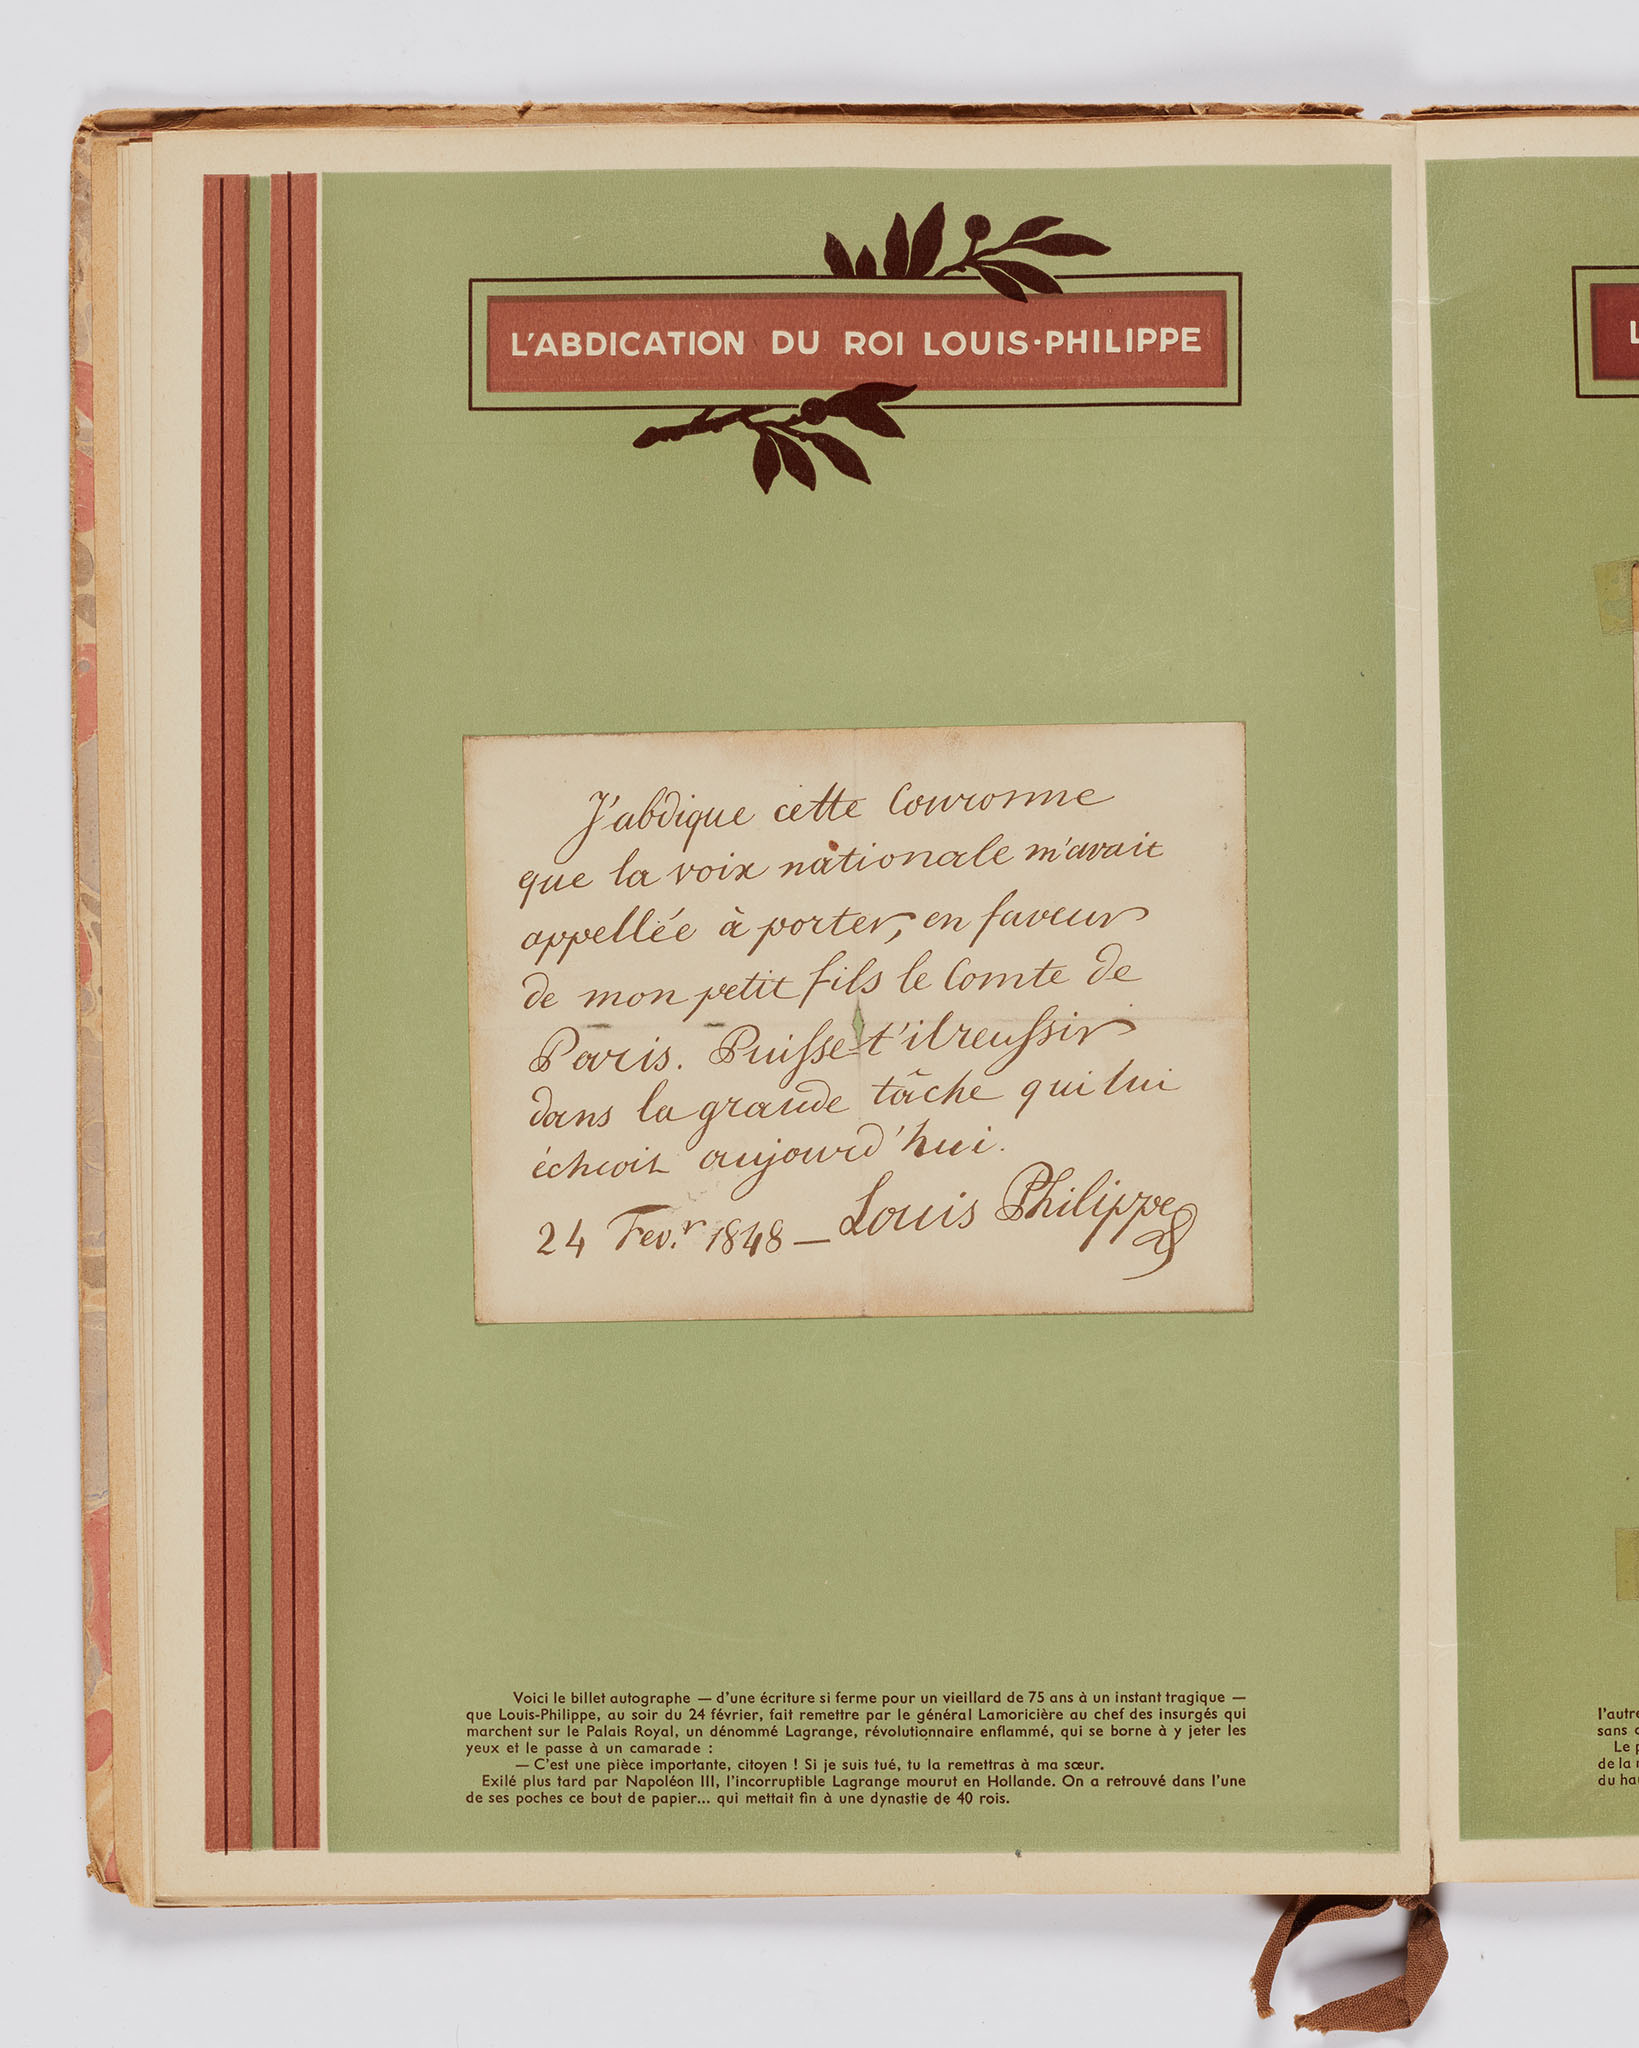 L'ABDICATION DU ROI LOUIS-PHILIPPE
J'abdique cette Couronne
que la voix nationale m'avait
appellée à porter, en faveur
de mon petit fils le Comte de
Paris. Puisse-t'il reussir
dans la grande tâche qui lui
échoit aujourd'hui.
24 Fev.r 1848 — Louis Philippe
Voici le billet autographe — d'une écriture si ferme pour un vieillard de 75 ans à un instant tragique —
que Louis-Philippe, au soir du 24 février, fait remettre par le général Lamoricière au chef des insurgés qui
marchent sur le Palais Royal, un dénommé Lagrange, révolutionnaire enflammé, qui se borne à y jeter les
yeux et le passe à un camarade :
— C'est une pièce importante, citoyen ! Si je suis tué, tu la remettras à ma sœur.
Exilé plus tard par Napoléon III, l'incorruptible Lagrange mourut en Hollande. On a retrouvé dans l'une
de ses poches ce bout de papier... qui mettait fin à une dynastie de 40 rois.
L
l'autre
sans
Le
de la
du